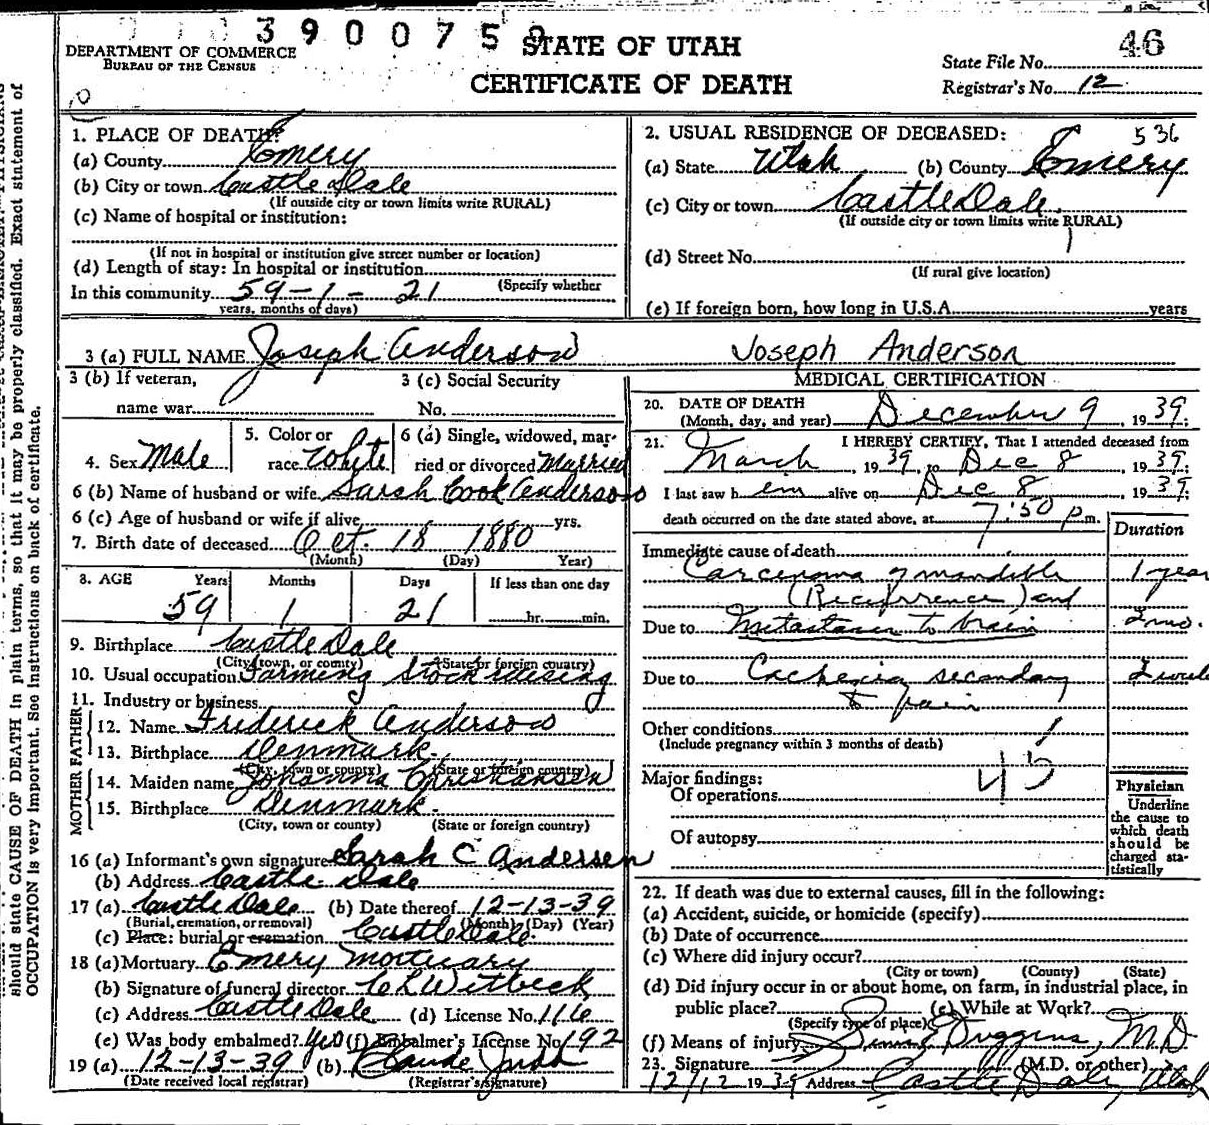 3900750
DEPARTMENT OF COMMERCE
BUREAU OF THE CENSUS
STATE OF UTAH
CERTIFICATE OF DEATH
46
State File No.
Registrar's No. 12
1. PLACE OF DEATH:
(a) County Emery
(b) City or town Castle Dale
(If outside city or town limits write RURAL)
(c) Name of hospital or institution:
(If not in hospital or institution give street number or location)
(d) Length of stay: In hospital or institution
In this community 59-1-21 (Specify whether
years, months or days)
2. USUAL RESIDENCE OF DECEASED: 536
(a) State Utah (b) County Emery
(c) City or town Castle Dale
(If outside city or town limits write RURAL)
(d) Street No.
(If rural give location)
(e) If foreign born, how long in U.S.A. years
3 (a) FULL NAME Joseph Anderson Joseph Anderson
3 (b) If veteran,
name war
3 (c) Social Security
No.
4. Sex Male
5. Color or
race White
6 (a) Single, widowed, mar-
ried or divorced Married
6 (b) Name of husband or wife Sarah Cook Anderson
6 (c) Age of husband or wife if alive yrs.
7. Birth date of deceased Oct. 18 1880
(Month) (Day) Year)
8. AGE Years Months Days If less than one day
59 1 21 hr. min.
9. Birthplace Castle Dale
(City, town, or county) (State or foreign country)
10. Usual occupation Farming Stockraising
11. Industry or business
FATHER
12. Name Friderick Anderson
13. Birthplace Denmark.
(City, town or county) (State or foreign country)
MOTHER
14. Maiden name Johanna Christiansen
15. Birthplace Denmark.
(City, town or county) (State or foreign country)
16 (a) Informant's own signature Sarah C Andersen
(b) Address Castle Dale
17 (a) Castle Dale (b) Date thereof 12-13-39
(Burial, cremation, or removal) (Month) (Day) (Year)
(c) Place: burial or cremation Castle Dale.
18 (a) Mortuary Emery Mortuary
(b) Signature of funeral director C L Witbeck
(c) Address Castle Dale (d) License No. 116
(e) Was body embalmed? Yes (f) Embalmer's License No. 192
19 (a) 12-13-39 (b) Claude
(Date received local registrar) (Registrar's signature)
MEDICAL CERTIFICATION
20. DATE OF DEATH
(Month, day, and year) December 9, 1939.
21. I HEREBY CERTIFY, That I attended deceased from
March, 1939, to Dec 8, 1939;
I last saw h im alive on Dec 8, 1939;
death occurred on the date stated above, at 7:50 p m.
Duration
Immediate cause of death
Carcinoma of mandible 1 year
(Recurrence) and
Due to Metastases to brain 2 mo.
Due to Cachexia secondary
to pain
Other conditions
(Include pregnancy within 3 months of death)
Major findings:
Of operations
45
Of autopsy
Physician
Underline
the cause to
which death
should be
charged sta-
tistically
22. If death was due to external causes, fill in the following:
(a) Accident, suicide, or homicide (specify)
(b) Date of occurrence
(c) Where did injury occur?
(City or town) (County) (State)
(d) Did injury occur in or about home, on farm, in industrial place, in
public place? (e) While at Work?
(Specify type of place)
(f) Means of injury
23. Signature Duggins, M.D
(M.D. or other)
12/12 1939 Address Castle Dale, Utah
should state CAUSE OF DEATH in plain terms, so that it may be properly classified. Exact statement of
OCCUPATION is very important. See instructions on back of certificate.